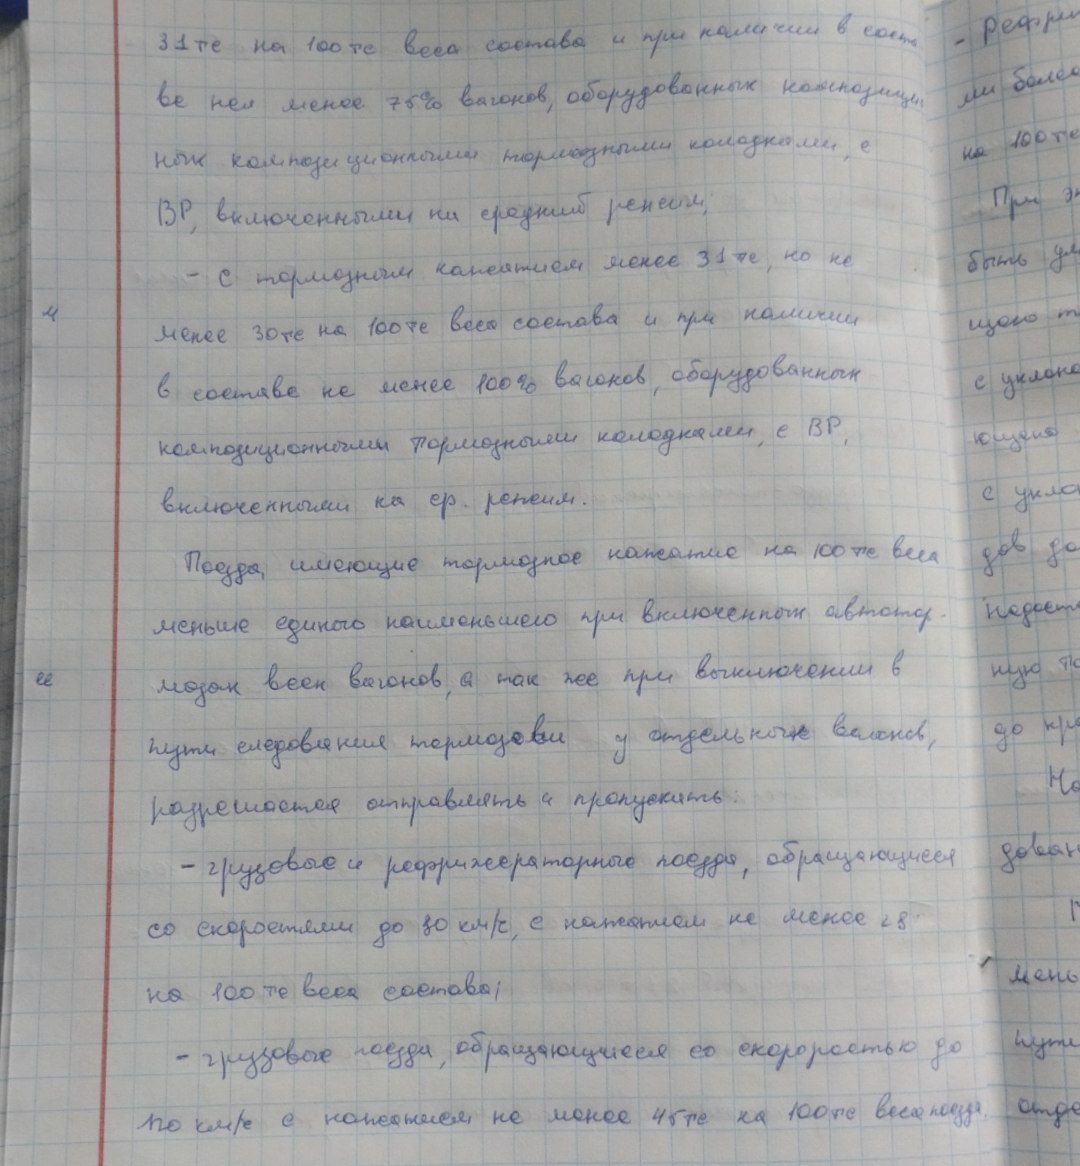 31тс на 100тс веса состава и при наличии в соста
ве нея менее 75% вагонов, оборудованных композицион
ных композиционными тормозными колодками, с
ВР, включенными на средний режим;
- с тормозным нажатием менее 31тс, но не
менее 30тс на 100тс веса состава и при наличии
в составе не менее 100% вагонов, оборудованных
композиционными тормозными колодками, с ВР,
включенными на ср. режим.
Поезда, имеющие тормозное нажатие на 100тс веса
меньше единого наименьшего при включенных автотор-
мозах всех вагонов, а так же при выключении в
пути следования тормозови у отдельных вагонов,
разрешается отправлять и пропускать:
- грузовые и рефрижераторные поезда, обращающиеся
со скоростями до 80 км/с, с нажатием не менее 28
на 100тс веса состава;
- грузовые поезда, обращающиеся со скороростью до
км/с с нажатием не менее 45тс на 100тс веса поезда.
- Рефри
ми более
на 100тс
При эт
быть ум
щего т
с уклоно
ющего
с уклон
дов до
недоста
ную то
до кра
На
дован
мень
пути
отде